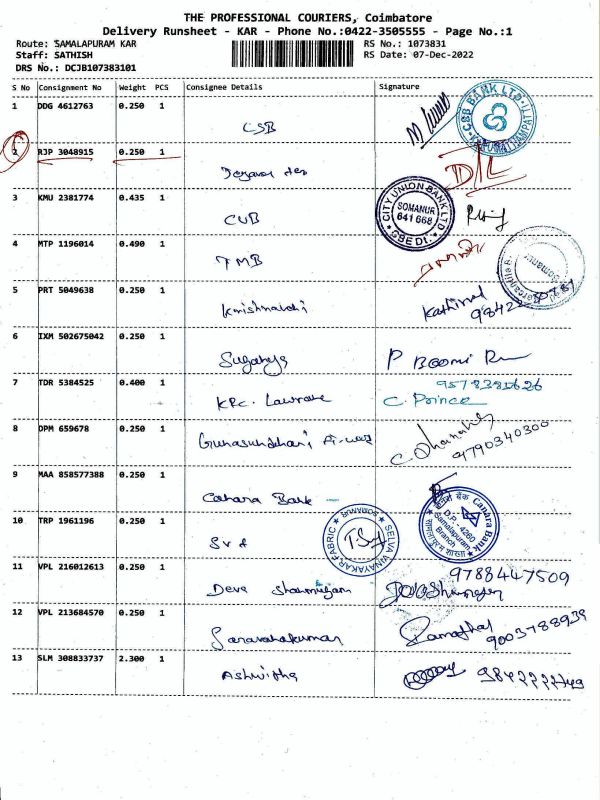 THE PROFESSIONAL COURIERS, Coimbatore
Delivery Runsheet - KAR - Phone No.:0422-3505555 - Page No.:1
Route: SAMALAPURAM KAR
Staff: SATHISH
DRS No.: DCJB107383101
RS No.: 1073831
RS Date: 07-Dec-2022
S No Consignment No Weight PCS Consignee Details Signature
1 DDG 4612763 0.250 1
CSB
CSB BANK LTD
2 RJP 3048915 0.250 1
3 KMU 2381774 0.435 1
CUB
CITY UNION BANK LTD
SOMANUR
641 668
4 MTP 1196014 0.490 1
TMB
5 PRT 5049638 0.250 1
6 IXM 502675042 0.250 1
Suganya
P Boomi
7 TDR 5384525 0.400 1
KRC.
9578381626
C. Prince
8 DPM 659678 0.250 1
9790340300
9 MAA 858577388 0.250 1
Canara Bank
10 TRP 1961196 0.250 1
SVF
SELVA VINAYAKAR FABRIC
SOMANUR
Canara Bank
D.P.-4260
Samalapuram
Branch
11 VPL 216012613 0.250 1
Deva Shanmugam
9788447509
12 VPL 213684570 0.250 1
Saravanakumar
9003788939
13 SLM 308833737 2.300 1
Ashwitha
9842222749